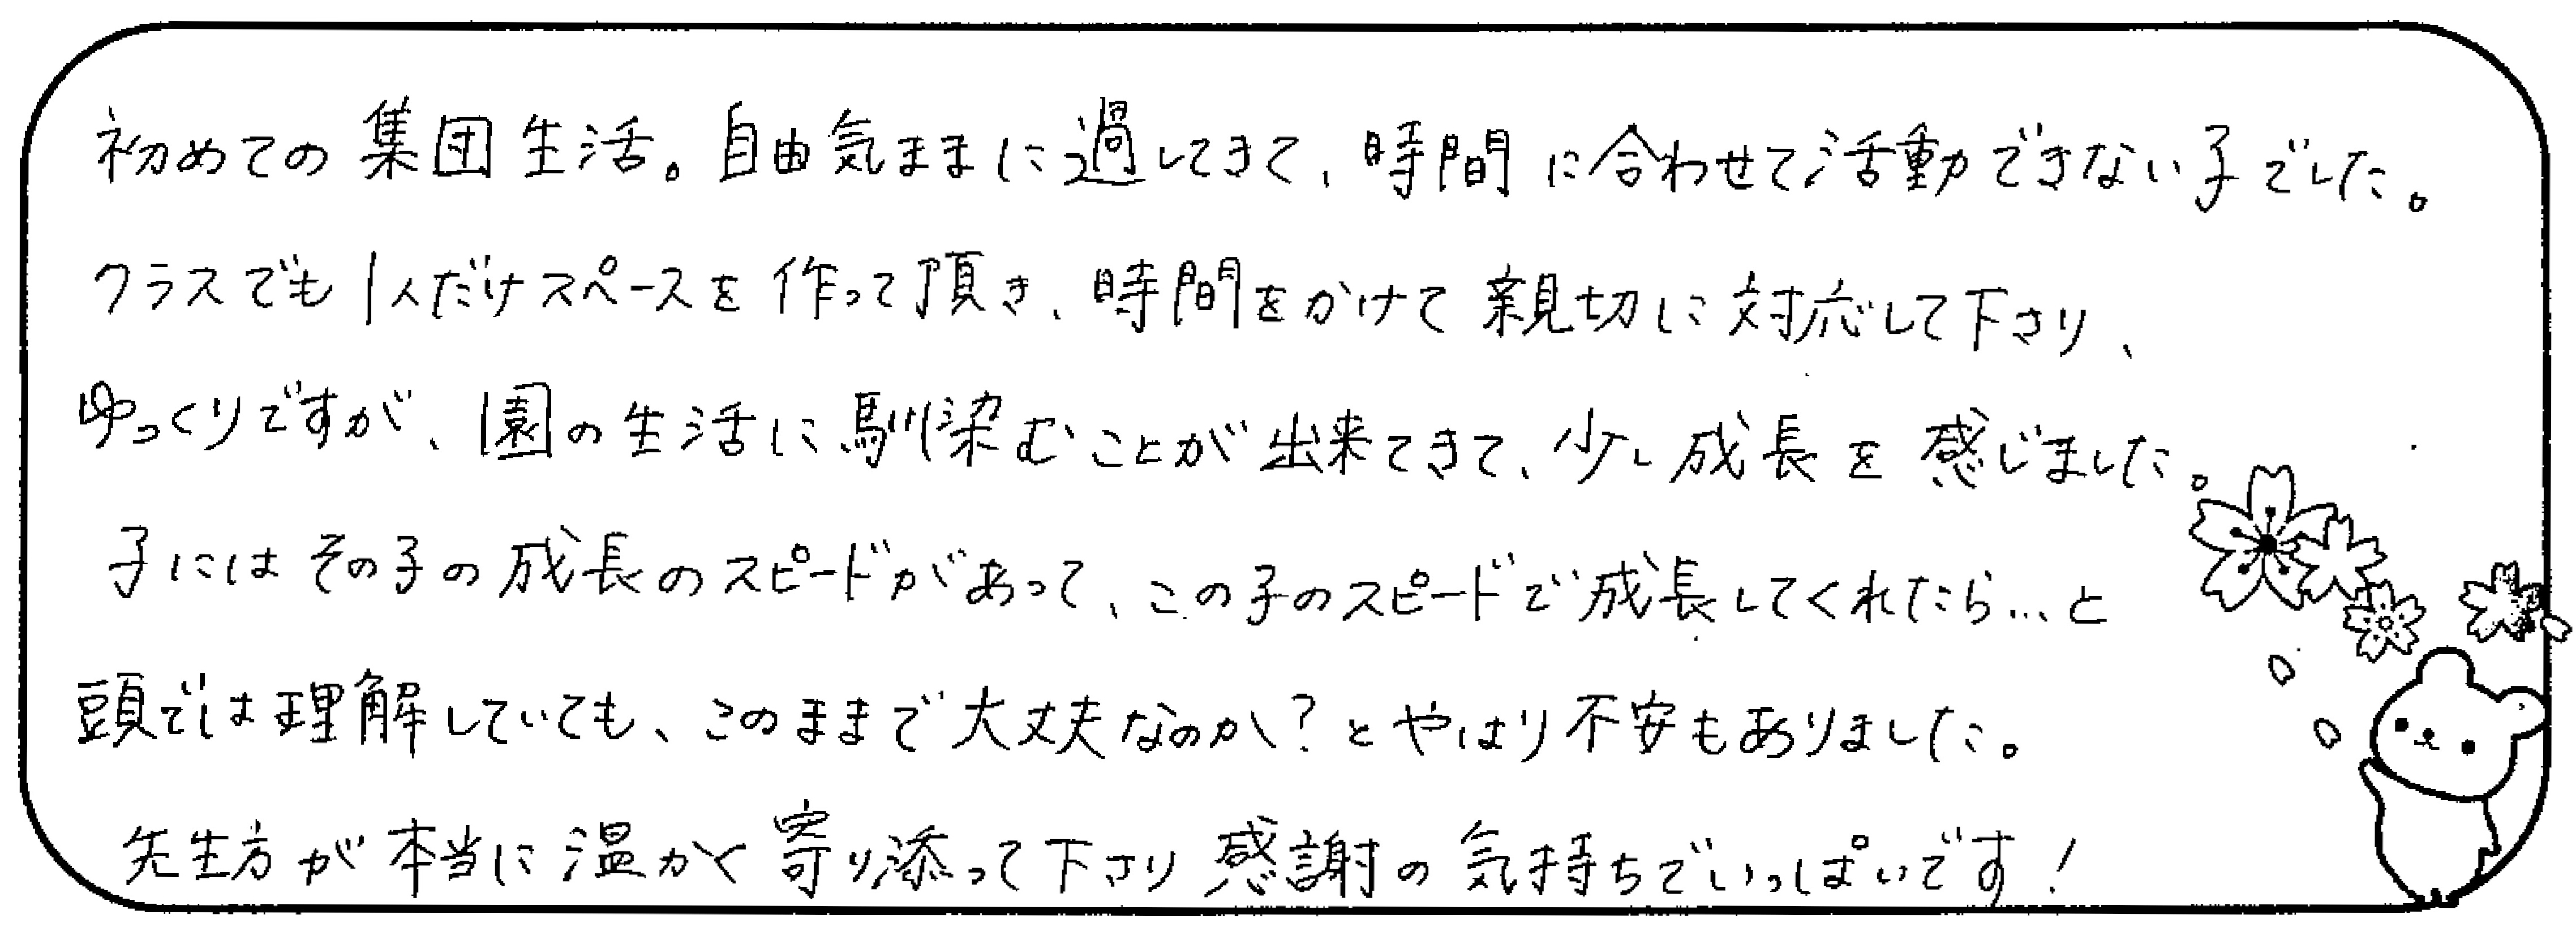 初めての集団生活。自由気ままに過してきて、時間に合わせて活動できない子でした。
クラスでも1人だけスペースを作って頂き、時間をかけて親切に対応して下さり、
ゆっくりですが、園の生活に馴染むことが出来てきて、少し成長を感じました。
子にはその子の成長のスピードがあって、この子のスピードで成長してくれたら…と
頭では理解していても、このままで大丈夫なのか?とやはり不安もありました。
先生方が本当に温かく寄り添って下さり感謝の気持ちでいっぱいです!